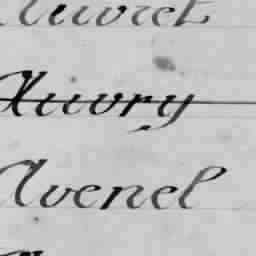 Auvret
Auvry
Avenel